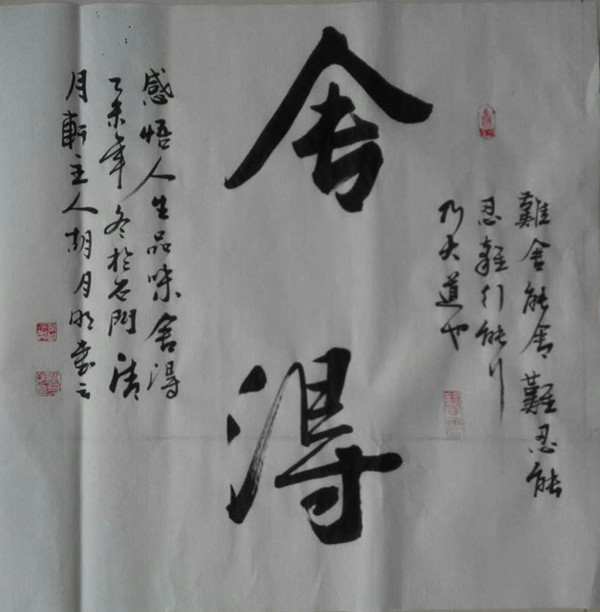 難舍能舍難忍能
忍難行能行
乃大道也
舍得
感悟人生品味舍得
乙未年冬於石門清
月軒主人胡月明書之